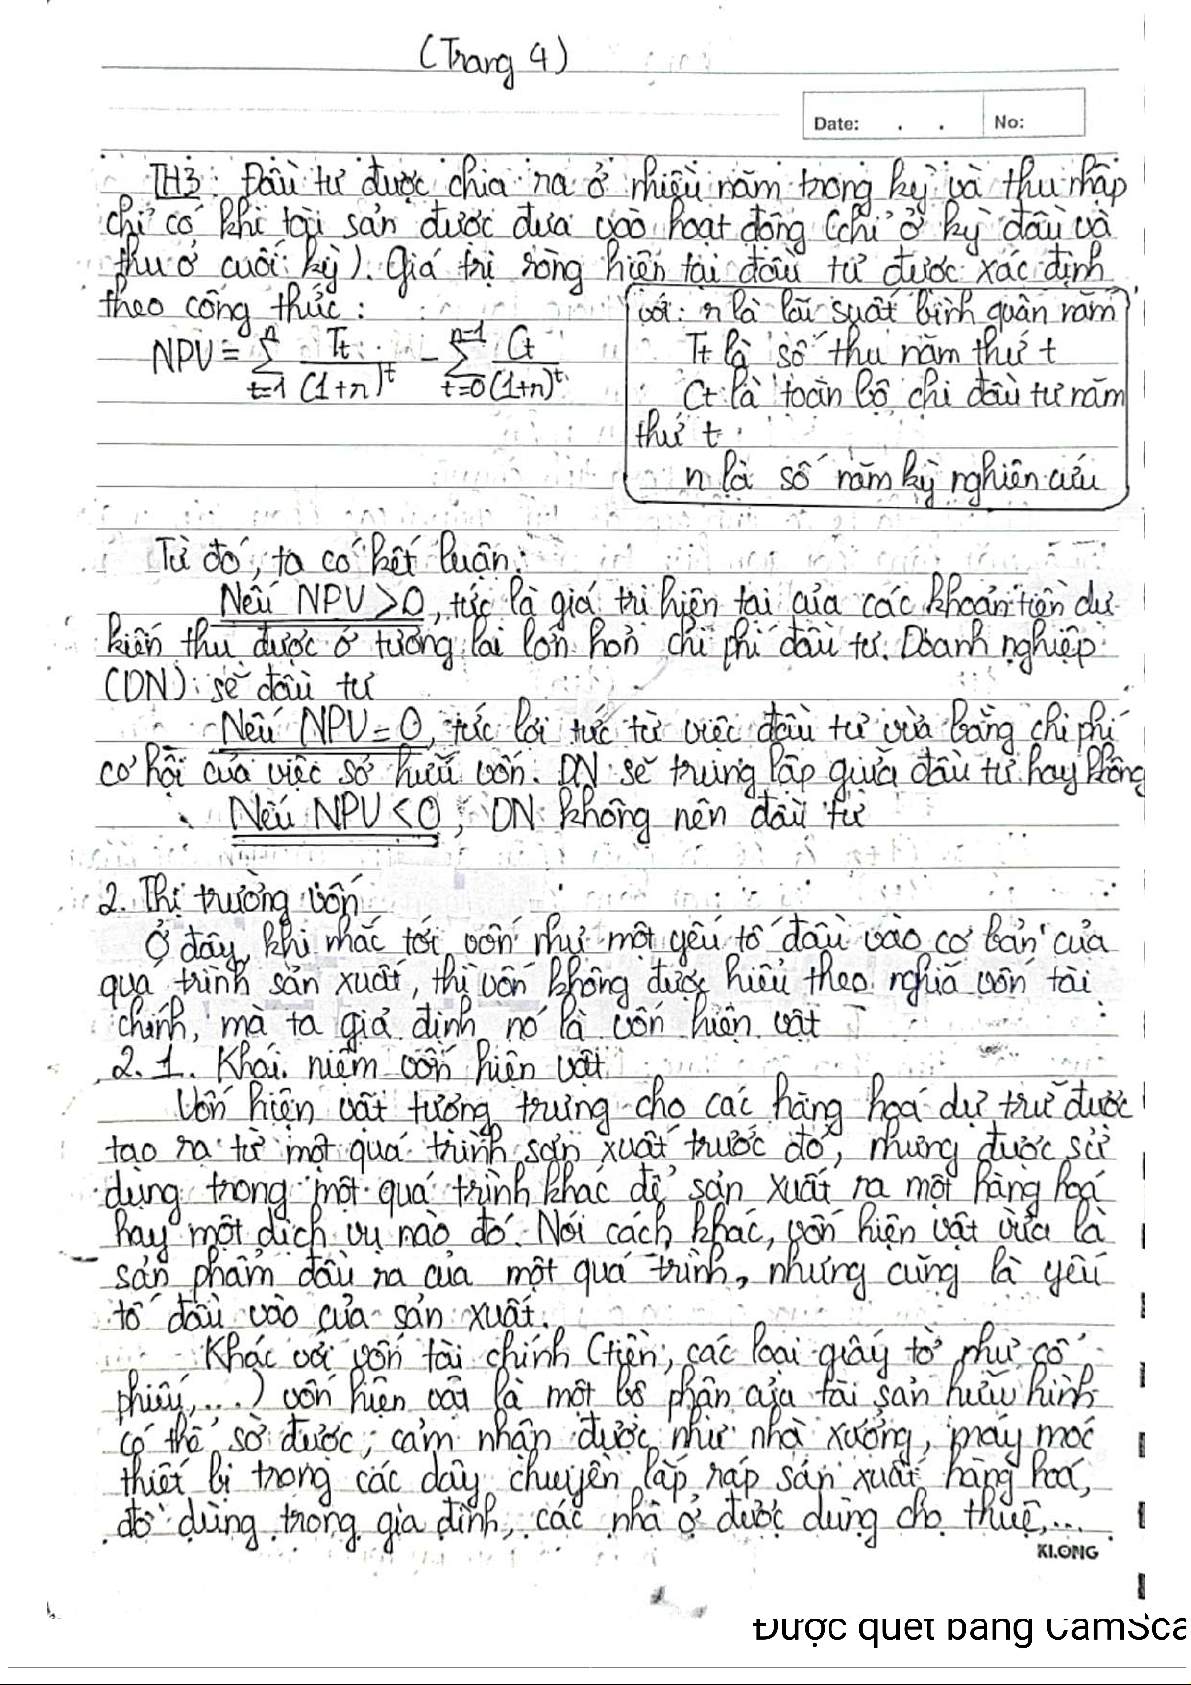 (Trang 4)
Date: . . No:
TH3: Đầu tư được chia ra ở nhiều năm trong kỳ và thu nhập
chỉ có khi tài sản được đưa vào hoạt động (chi ở kỳ đầu và
thu ở cuối kỳ). Giá trị ròng hiện tại đầu tư được xác định
theo công thức:
NPV = Σ_{t=1}^{n} Tt/(1+r)^t - Σ_{t=0}^{n-1} Ct/(1+r)^t
với: r là lãi suất bình quân năm
Tt là số thu năm thứ t
Ct là toàn bộ chi đầu tư năm
thứ t
n là số năm kỳ nghiên cứu
Từ đó, ta có kết luận:
Nếu NPV > 0, tức là giá trị hiện tại của các khoản tiền dự
kiến thu được ở tương lai lớn hơn chi phí đầu tư. Doanh nghiệp
(DN) sẽ đầu tư
Nếu NPV = 0, tức lợi tức từ việc đầu tư vừa bằng chi phí
cơ hội của việc sở hữu vốn. DN sẽ trung lập giữa đầu tư hay không
Nếu NPV < 0, DN không nên đầu tư
2. Thị trường vốn
Ở đây, khi nhắc tới vốn như một yếu tố đầu vào cơ bản của
quá trình sản xuất, thì vốn không được hiểu theo nghĩa vốn tài
chính, mà ta giả định nó là vốn hiện vật
2.1. Khái niệm vốn hiện vật
Vốn hiện vật tượng trưng cho các hàng hoá dự trữ được
tạo ra từ một quá trình sản xuất trước đó, nhưng được sử
dụng trong một quá trình khác để sản xuất ra một hàng hoá
hay một dịch vụ nào đó. Nói cách khác, vốn hiện vật vừa là
sản phẩm đầu ra của một quá trình, nhưng cũng là yếu
tố đầu vào của sản xuất.
Khác với vốn tài chính (tiền, các loại giấy tờ như cổ
phiếu,...) vốn hiện vật là một bộ phận của tài sản hữu hình
có thể sờ được, cảm nhận được như nhà xưởng, máy móc
thiết bị trong các dây chuyền lắp ráp sản xuất hàng hoá,
đồ dùng trong gia đình, các nhà ở được dùng cho thuê,...
KLONG
Được quét bằng CamSca